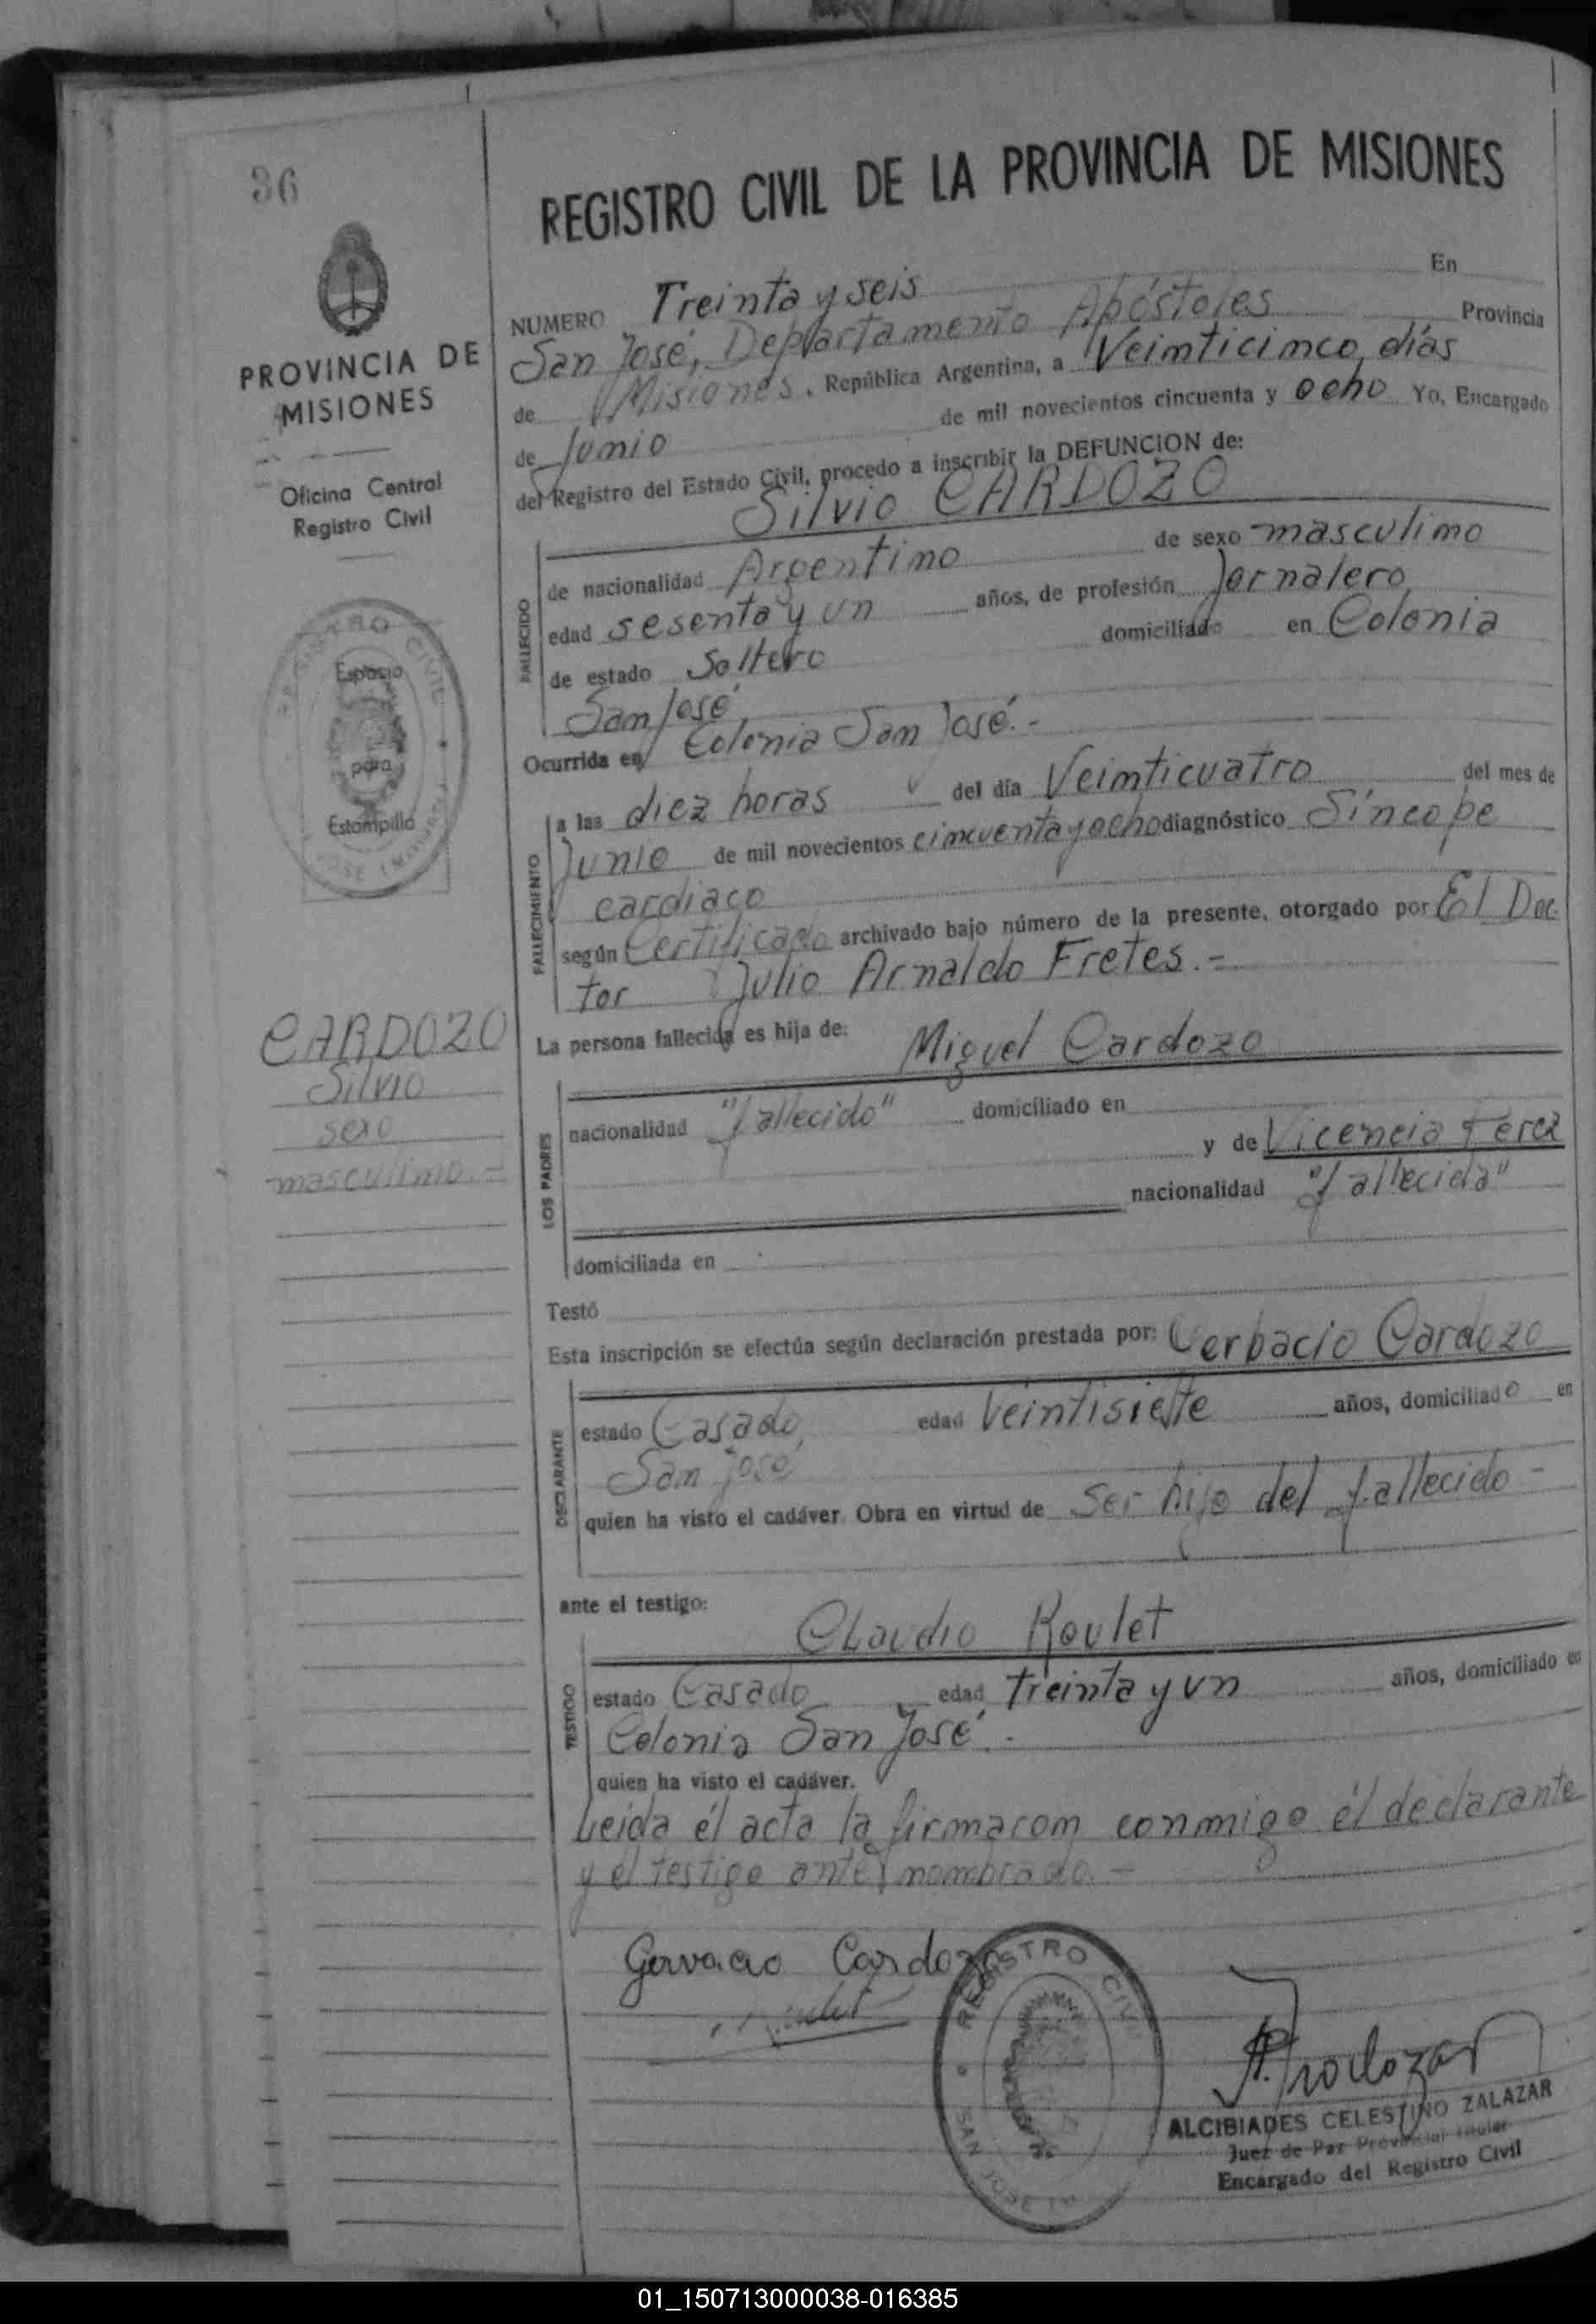 36
REGISTRO CIVIL DE LA PROVINCIA DE MISIONES
PROVINCIA DE
MISIONES
Oficina Central
Registro Civil
REGISTRO CIVIL
Espacio
para
Estampilla
CARDOZO
Silvio
sexo
masculino.-
NUMERO Treinta y seis En
San José, Departamento Apóstoles Provincia
de Misiones, República Argentina, a Veinticinco días
de Junio de mil novecientos cincuenta y ocho Yo, Encargado
del Registro del Estado Civil, procedo a inscribir la DEFUNCION de:
Silvio CARDOZO
FALLECIDO
de nacionalidad Argentino de sexo masculino
edad sesenta y un años, de profesión Jornalero
de estado Soltero domiciliado en Colonia
San José
Ocurrida en Colonia San José.-
FALLECIMIENTO
a las diez horas del día Veinticuatro del mes de
Junio de mil novecientos cincuenta y ocho diagnóstico Síncope
cardiaco
según Certificado archivado bajo número de la presente, otorgado por El Doc
tor Julio Arnaldo Fretes.-
La persona fallecida es hija de: Miguel Cardozo
LOS PADRES
nacionalidad "fallecido" domiciliado en
y de Vicencia
nacionalidad "fallecida"
domiciliada en
Testó
Esta inscripción se efectúa según declaración prestada por: Gerbacio Cardozo
DECLARANTE
estado Casado edad Veintisiete años, domiciliado en
San José
quien ha visto el cadáver. Obra en virtud de Ser hijo del fallecido-
ante el testigo:
Claudio Roulet
TESTIGO
estado Casado edad treinta y un años, domiciliado en
Colonia San José.-
quien ha visto el cadáver.
Leida él acta la firmaron conmigo él declarante
y el testigo ante nombrado.-
Gervacio Cardozo
REGISTRO CIVIL
SAN JOSE
ALCIBIADES CELESTINO ZALAZAR
Juez de Paz Provincial Titular
Encargado del Registro Civil
01_150713000038-016385